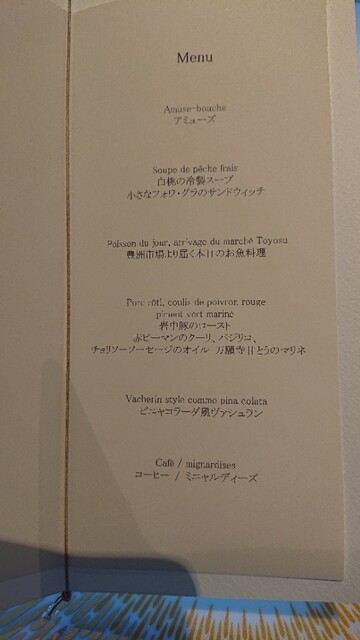 Menu
Amuse-bouche
アミューズ
Soupe de pêche frais
白桃の冷製スープ
小さなフォワ・グラのサンドウィッチ
Poisson du jour, arrivage du marché Toyosu
豊洲市場より届く本日のお魚料理
Porc rôti, coulis de poivron rouge
piment vert mariné
岩中豚のロースト
赤ピーマンのクーリ、バジリコ、
チョリソーソーセージのオイル 万願寺唐辛子とうのマリネ
Vacherin style comme pina colata
ピニャコラーダ風ヴァシュラン
Café / mignardises
コーヒー / ミニャルディーズ